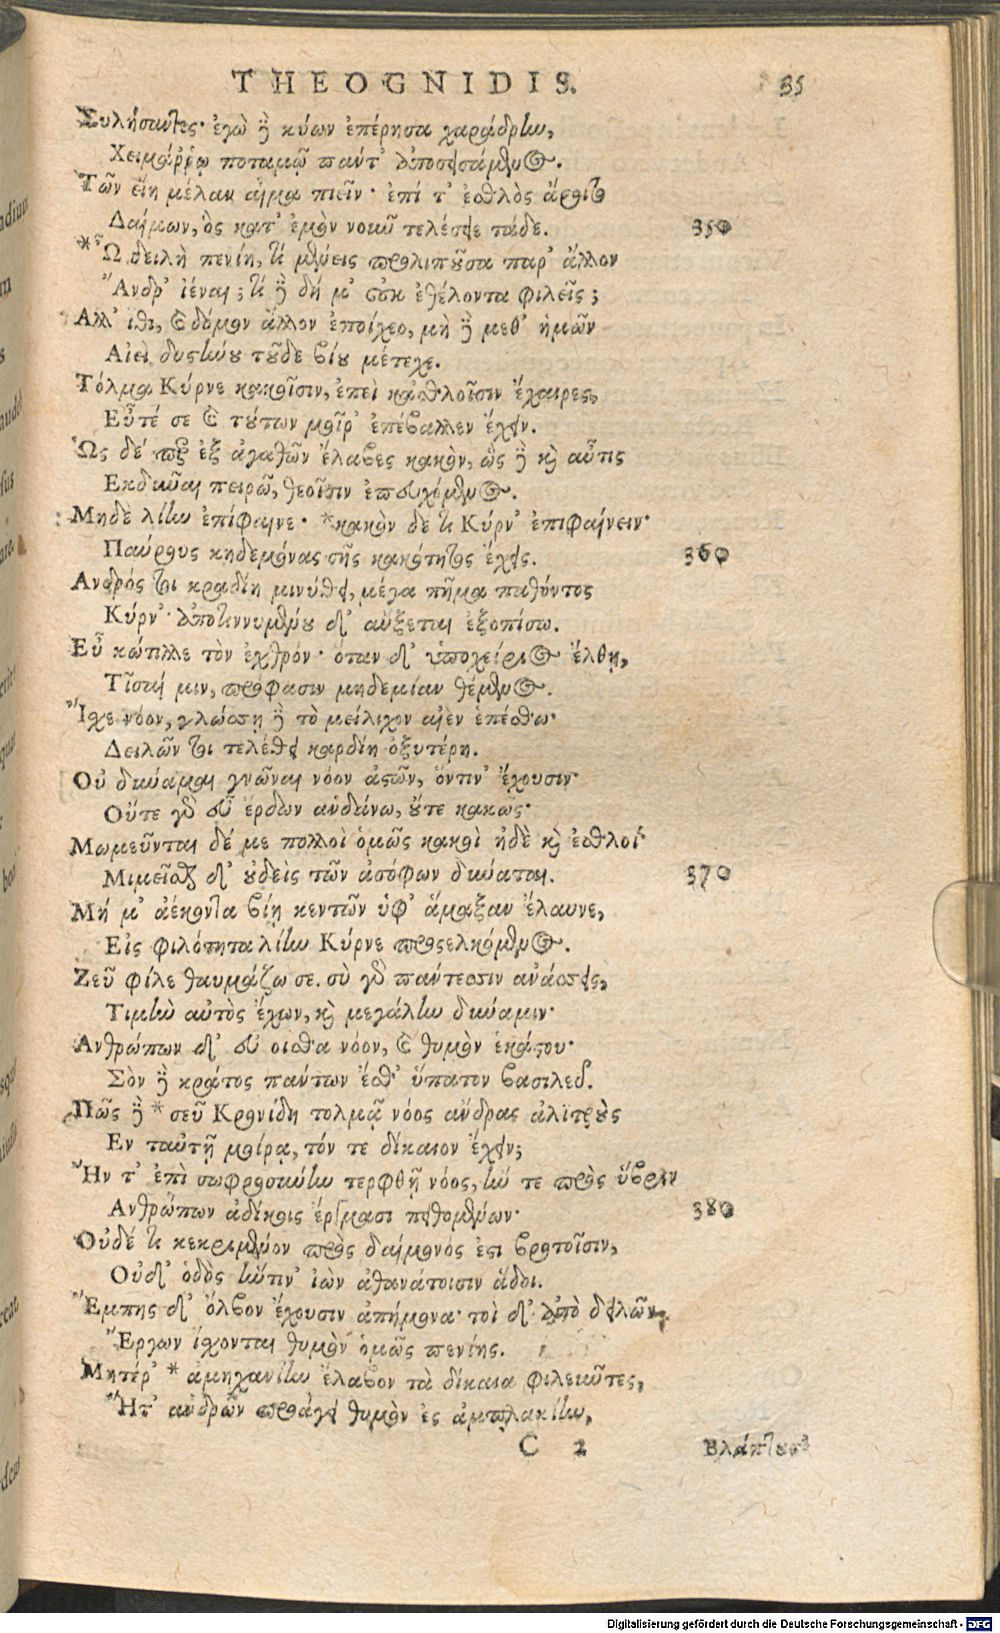 THEOGNIDIS. 35
Συλήσαντες· ἐγὼ δὲ κύων ἐπέρησα χαράδρην,
Χειμάῤῥῳ ποταμῷ πάντ' ἀποσεισάμενος.
Τῶν εἴη μέλαν αἷμα πιεῖν· ἐπί τ' ἐσθλὸς ὄροιτο
Δαίμων, ὃς κατ' ἐμὸν νοῦν τελέσειε τάδε. 350
*Ὦ δειλὴ πενίη, τί μένεις προλιποῦσα παρ' ἄλλον
Ἄνδρ' ἰέναι; τί δὲ δή μ' οὐκ ἐθέλοντα φιλεῖς;
Αλλ' ἴθι, καὶ δόμον ἄλλον ἐποίχεο, μὴ δὲ μεθ' ἡμῶν
Αἰεὶ δυστήνου τοῦδε βίου μέτεχε.
Τόλμα Κύρνε κακοῖσιν, ἐπεὶ κἀσθλοῖσιν ἔχαιρες,
Εὖτέ σε καὶ τούτων μοῖρ' ἐπέβαλλεν ἔχειν.
Ὡς δέ περ ἐξ ἀγαθῶν ἔλαβες κακὸν, ὣς δὲ καὶ αὖτις
Εκδῦναι πειρῶ, θεοῖσιν ἐπευχόμενος.
Μηδὲ λίην ἐπίφαινε· *κακὸν δέ τι Κύρν' ἐπιφαίνειν·
Παύρους κηδεμόνας σῆς κακότητος ἔχεις. 360
Ανδρός τοι κραδίη μινύθει, μέγα πῆμα παθόντος
Κύρν'· ἀποτιννυμένου δ' αὔξεται ἐξοπίσω.
Εὖ κώτιλλε τὸν ἐχθρόν· ὅταν δ' ὑποχείριος ἔλθῃ,
Τῖσαί μιν, πρόφασιν μηδεμίαν θέμενος.
Ἴσχε νόον, γλώσσῃ δὲ τὸ μείλιχον αἰὲν ἐπέσθω·
Δειλῶν τοι τελέθει καρδίη ὀξυτέρη.
Οὐ δύναμαι γνῶναι νόον ἀστῶν, ὅντιν' ἔχουσιν·
Οὔτε γὰρ εὖ ἔρδων ἁνδάνω, οὔτε κακῶς·
Μωμεῦνται δέ με πολλοὶ ὁμῶς κακοὶ ἠδὲ καὶ ἐσθλοί·
Μιμεῖσθαι δ' οὐδεὶς τῶν ἀσόφων δύναται. 370
Μή μ' ἀέκοντα βίῃ κεντῶν ὑφ' ἅμαξαν ἔλαυνε,
Εἰς φιλότητα λίην Κύρνε προσελκόμενος.
Ζεῦ φίλε θαυμάζω σε. σὺ γὰρ πάντεσσιν ἀνάσσεις,
Τιμὴν αὐτὸς ἔχων, καὶ μεγάλην δύναμιν·
Ανθρώπων δ' εὖ οἶσθα νόον, καὶ θυμὸν ἑκάστου·
Σὸν δὲ κράτος πάντων ἔσθ' ὕπατον βασιλεῦ.
Πῶς δὲ * σεῦ Κρονίδη τολμᾷ νόος ἄνδρας ἀλιτροὺς
Εν ταὐτῇ μοίρᾳ, τόν τε δίκαιον ἔχειν;
Ἢν τ' ἐπὶ σωφροσύνην τερφθῇ νόος, ἤν τε πρὸς ὕβριν
Ανθρώπων ἀδίκοις ἔργμασι πειθομένων· 380
Οὐδέ τι κεκριμένον πρὸς δαίμονός ἐστι βροτοῖσιν,
Οὐδ' ὁδὸς ἥντιν' ἰὼν ἀθανάτοισιν ἅδοι.
Ἔμπης δ' ὄλβον ἔχουσιν ἀπήμονα· τοὶ δ' ἀπὸ δειλῶν
Ἔργων ἴσχονται θυμὸν ὁμῶς πενίης.
Μητέρ' * ἀμηχανίην ἔλαβον τὰ δίκαια φιλεῦντες,
Ἥτ' ἀνδρῶν προάγει θυμὸν ἐς ἀμπλακίην,
C 2 Βλάπτουσ'
Digitalisierung gefördert durch die Deutsche Forschungsgemeinschaft - DFG